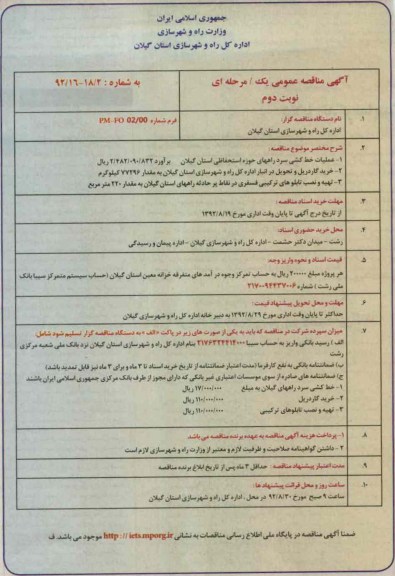 جمهوری اسلامی ایران
وزارت راه و شهرسازی
اداره کل راه و شهرسازی استان گیلان
آگهی مناقصه عمومی یک / مرحله ای
نوبت دوم
به شماره : ۹۲/۱۶-۱۸/۲
۱. نام دستگاه مناقصه گزار:
اداره کل راه و شهرسازی استان گیلان
فرم شماره PM-FO 02/00
۲. شرح مختصر موضوع مناقصه:
۱- عملیات خط کشی سرد راههای حوزه استحفاظی استان گیلان برآورد ۲/۲۸۲/۰۹۰/۸۳۲ ریال
۲- خرید گاردریل و تحویل در انبار اداره کل راه و شهرسازی استان گیلان به مقدار ۷۷۲۹۶ کیلوگرم
۳- تهیه و نصب تابلو های ترکیبی فسفری در نقاط پر حادثه راههای استان گیلان به مقدار ۲۲۰ متر مربع
۳. مهلت خرید اسناد مناقصه:
از تاریخ درج آگهی تا پایان وقت اداری مورخ ۱۳۹۲/۸/۱۹
۴. محل خرید حضوری اسناد:
رشت - میدان دکتر حشمت - اداره کل راه و شهرسازی گیلان - اداره پیمان و رسیدگی
۵. قیمت اسناد و نحوه واریز وجه:
هر پروژه مبلغ ۲۰۰۰۰۰ ریال به حساب تمرکز وجوه در آمد های متفرقه خزانه معین استان گیلان (حساب سیستم متمرکز سیبا بانک
ملی رشت ) شماره ۲۱۷۰۰۹۴۴۳۷۰۰۶
۶. مهلت و محل تحویل پیشنهاد قیمت:
حداکثر تا پایان وقت اداری مورخ ۱۳۹۲/۸/۲۹ به دبیر خانه اداره کل راه و شهرسازی گیلان
۷. میزان سپرده شرکت در مناقصه که باید به یکی از صورت های زیر در پاکت «الف » به دستگاه مناقصه گزار تسلیم شود شامل:
الف ) رسید بانکی واریز به حساب سیبا بنام اداره کل راه و شهرسازی استان گیلان نزد بانک ملی شعبه مرکزی
رشت
ب) ضمانتنامه بانکی به نفع کارفرما (مدت اعتبار ضمانتنامه از تاریخ خرید اسناد تا ۳ ماه و برای ۳ ماه نیز قابل تمدید باشد)
ج) ضمانتنامه های صادره از سوی موسسات اعتباری غیر بانکی که دارای مجوز از طرف بانک مرکزی جمهوری اسلامی ایران باشند
۱- خط کشی سرد راههای گیلان به مبلغ ریال
۲- خرید گاردریل ریال
۳- تهیه و نصب تابلوهای ترکیبی ریال
۸. ۱- پرداخت هزینه آگهی مناقصه به عهده برنده مناقصه می باشد
۲- داشتن گواهینامه صلاحیت و ظرفیت لازم و معتبر از وزارت راه و شهرسازی لازم است
۹. مدت اعتبار پیشنهاد مناقصه: حداقل ۳ ماه پس از تاریخ ابلاغ برنده مناقصه
۱۰. ساعت روز و محل قرائت پیشنهاد ها:
ساعت ۹ صبح مورخ ۹۲/۸/۳۰ در محل : اداره کل راه و شهرسازی استان گیلان
ضمنا آگهی مناقصه در پایگاه ملی اطلاع رسانی مناقصات به نشانی http://iets.mporg.ir موجود می باشد. ف